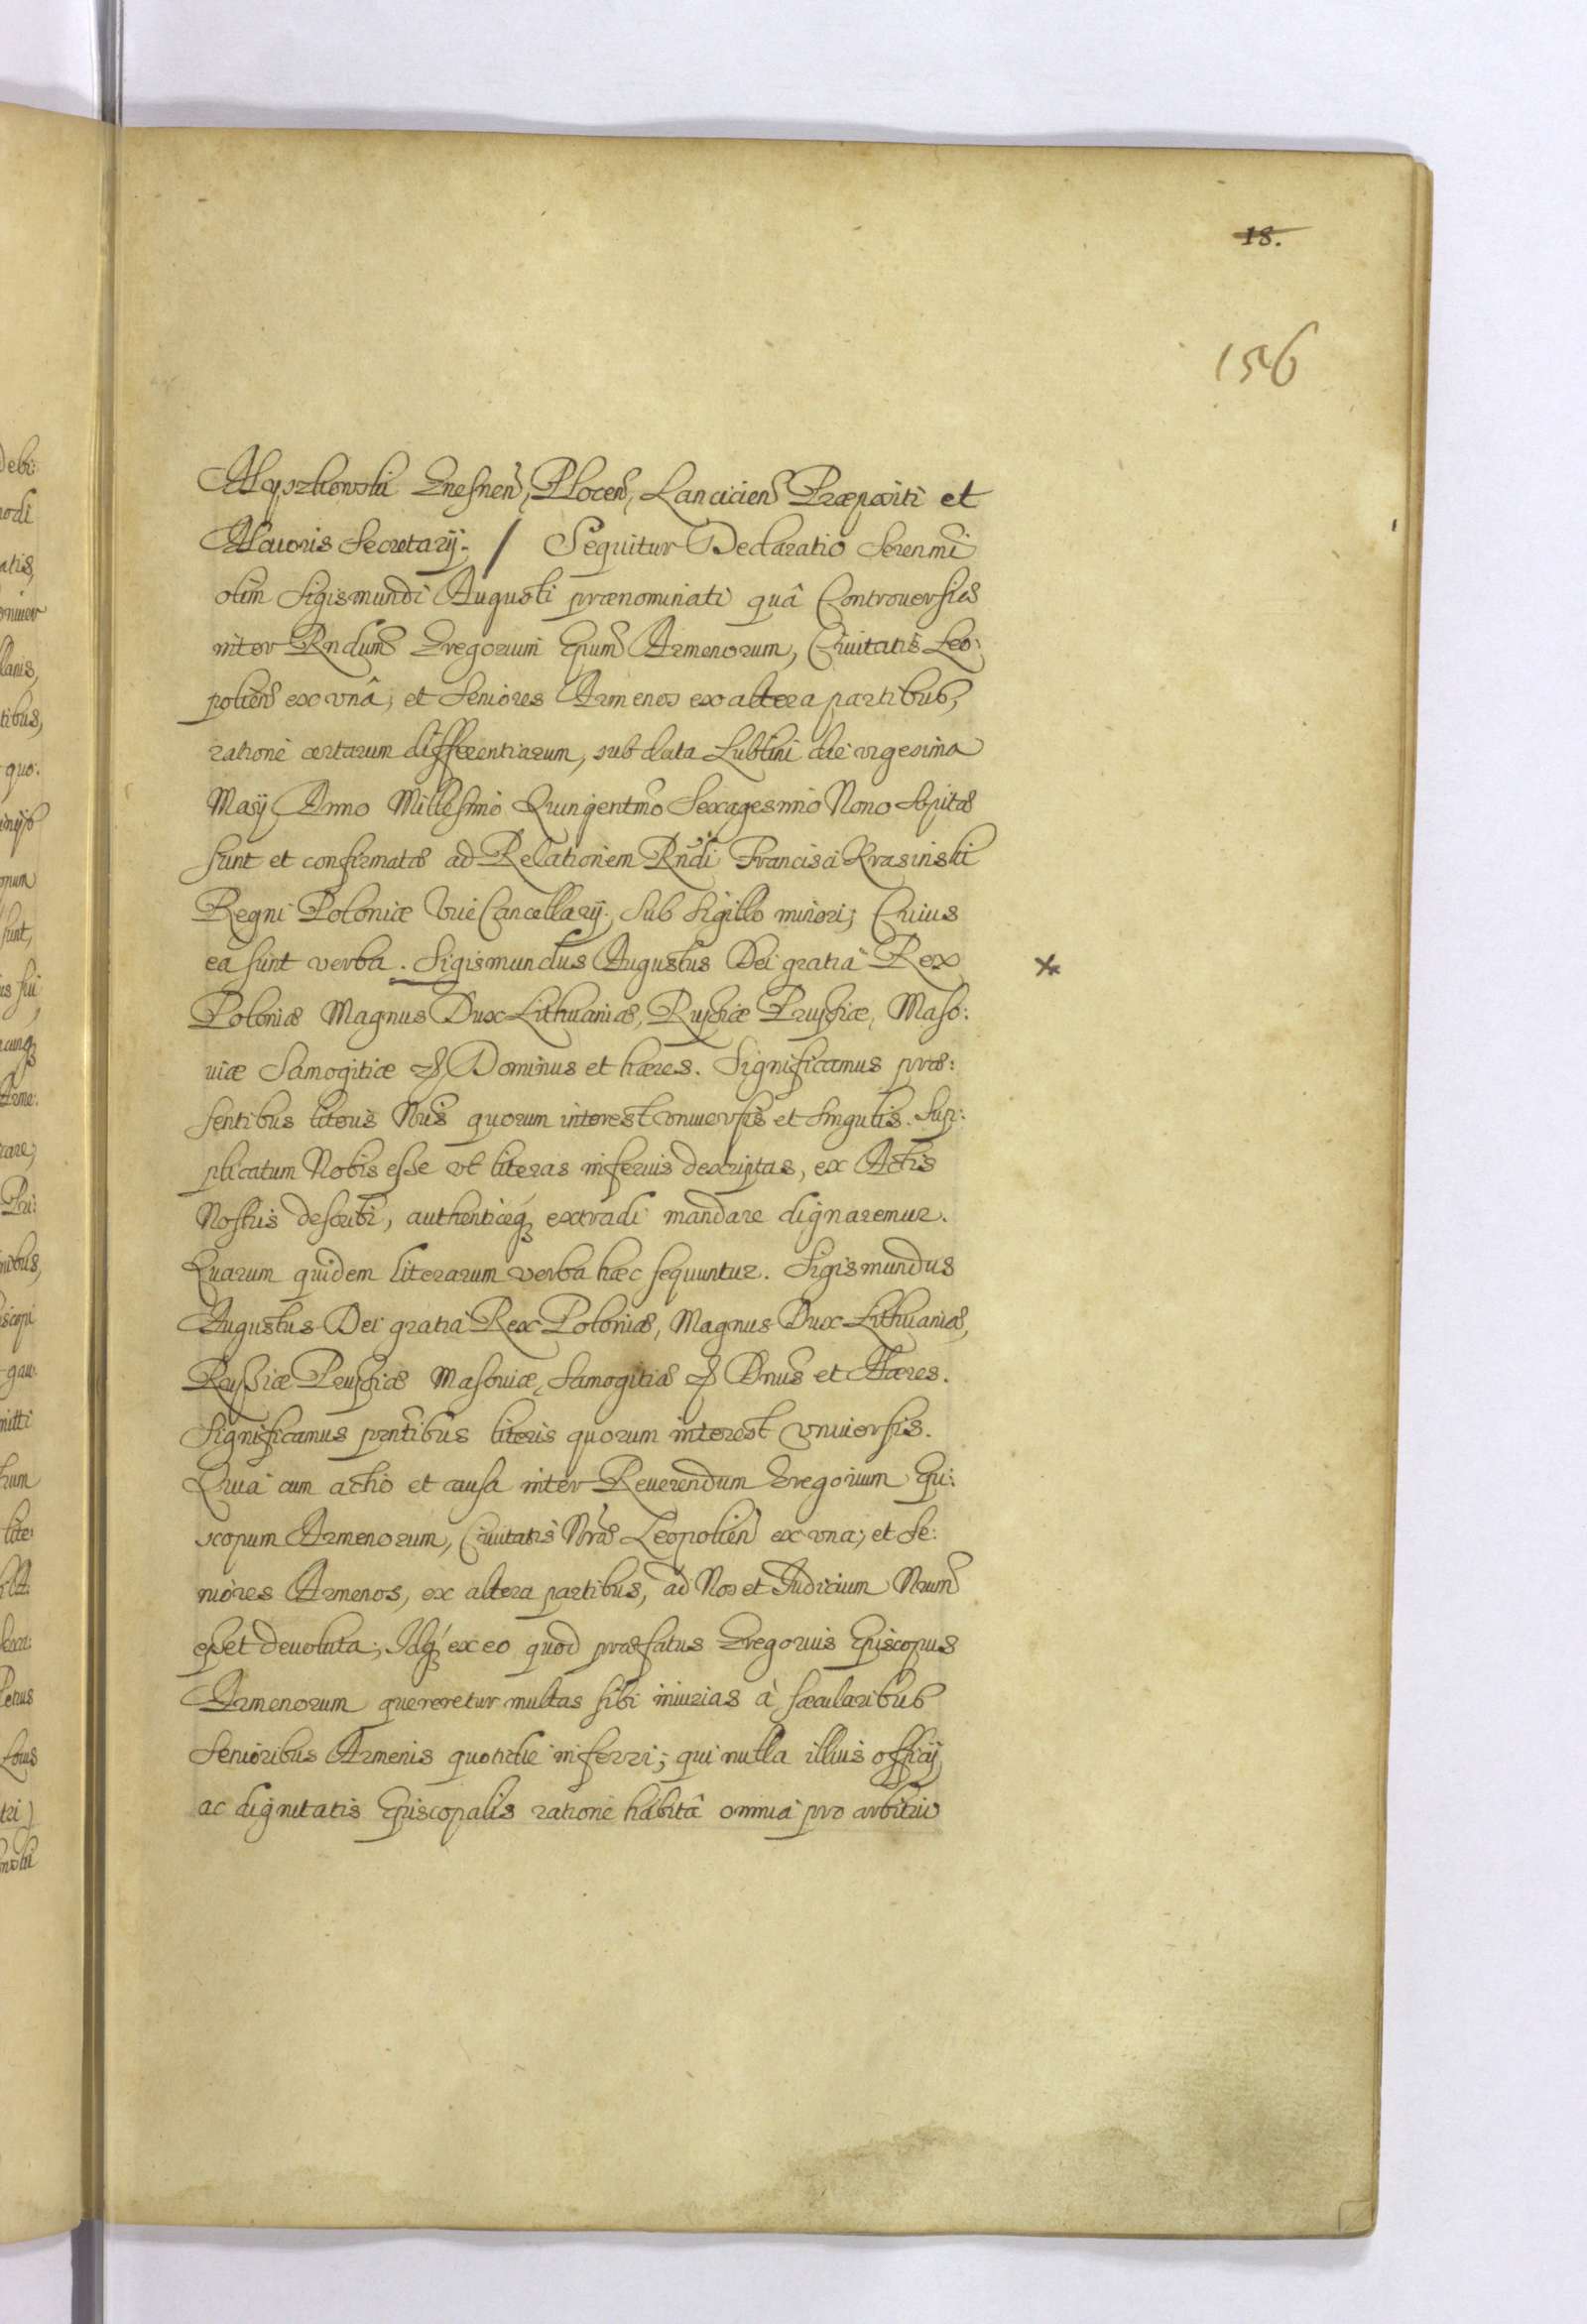 18.
156
Myszkowski Gnesnen, Plocen, Lancicien Præpositi et
Maioris Secretarij. / Sequitur Declaratio Serenmi
olim Sigismundi Augusti prænominati quâ Controuersiæ
inter Rndum Gregorium Epum Armenorum, Ciuitatis Leo:
polien ex vnâ, et Seniores Armenos ex altera partibus,
ratione certarum differentiarum, sub data Lublini die vigesima
Maij Anno Millesimo Quingentmo Sexagesimo Nono Sopitæ
sunt et confirmatæ ad Relationem Rndi Francisci Krasinski
Regni Poloniæ Vice Cancellarij. Sub Sigillo minori; Cuius
ea sunt verba. Sigismundus Augustus Dei gratia Rex
Poloniæ Magnus Dux Lithuaniæ, Russiæ Prussiæ, Maso:
uiæ Samogitiæ & Dominus et hæres. Significamus præ:
sentibus literis Nris quorum interest vniuersis et singulis. Sup:
plicatum Nobis esse vt literas inferius descriptas, ex Actis
Nostris describi, authenticeq extradi mandare dignaremur.
Quarum quidem literarum verba hæc sequuntur. Sigismundus
Augustus Dei gratia Rex Poloniæ, Magnus Dux Lithuaniæ,
Russiæ Prussiæ Masouiæ, Samogitiæ & Dnus et Hæres.
Significamus prntibus literis quorum interest vniuersis.
Quia cum actio et causa inter Reuerendum Gregorium Epi:
scopum Armenorum, Ciuitatis Nræ Leopolien ex vna; et Se:
niores Armenos, ex altera partibus, ad Nos et Judicium Nrum
esset deuoluta; Idq ex eo quod præfatus Gregorius Episcopus
Armenorum quereretur multas sibi iniurias à sæcularibus
Senioribus Armenis quotidie inferri; qui nulla illius officij
ac dignitatis Episcopalis ratione habitâ omnia pro arbitrio